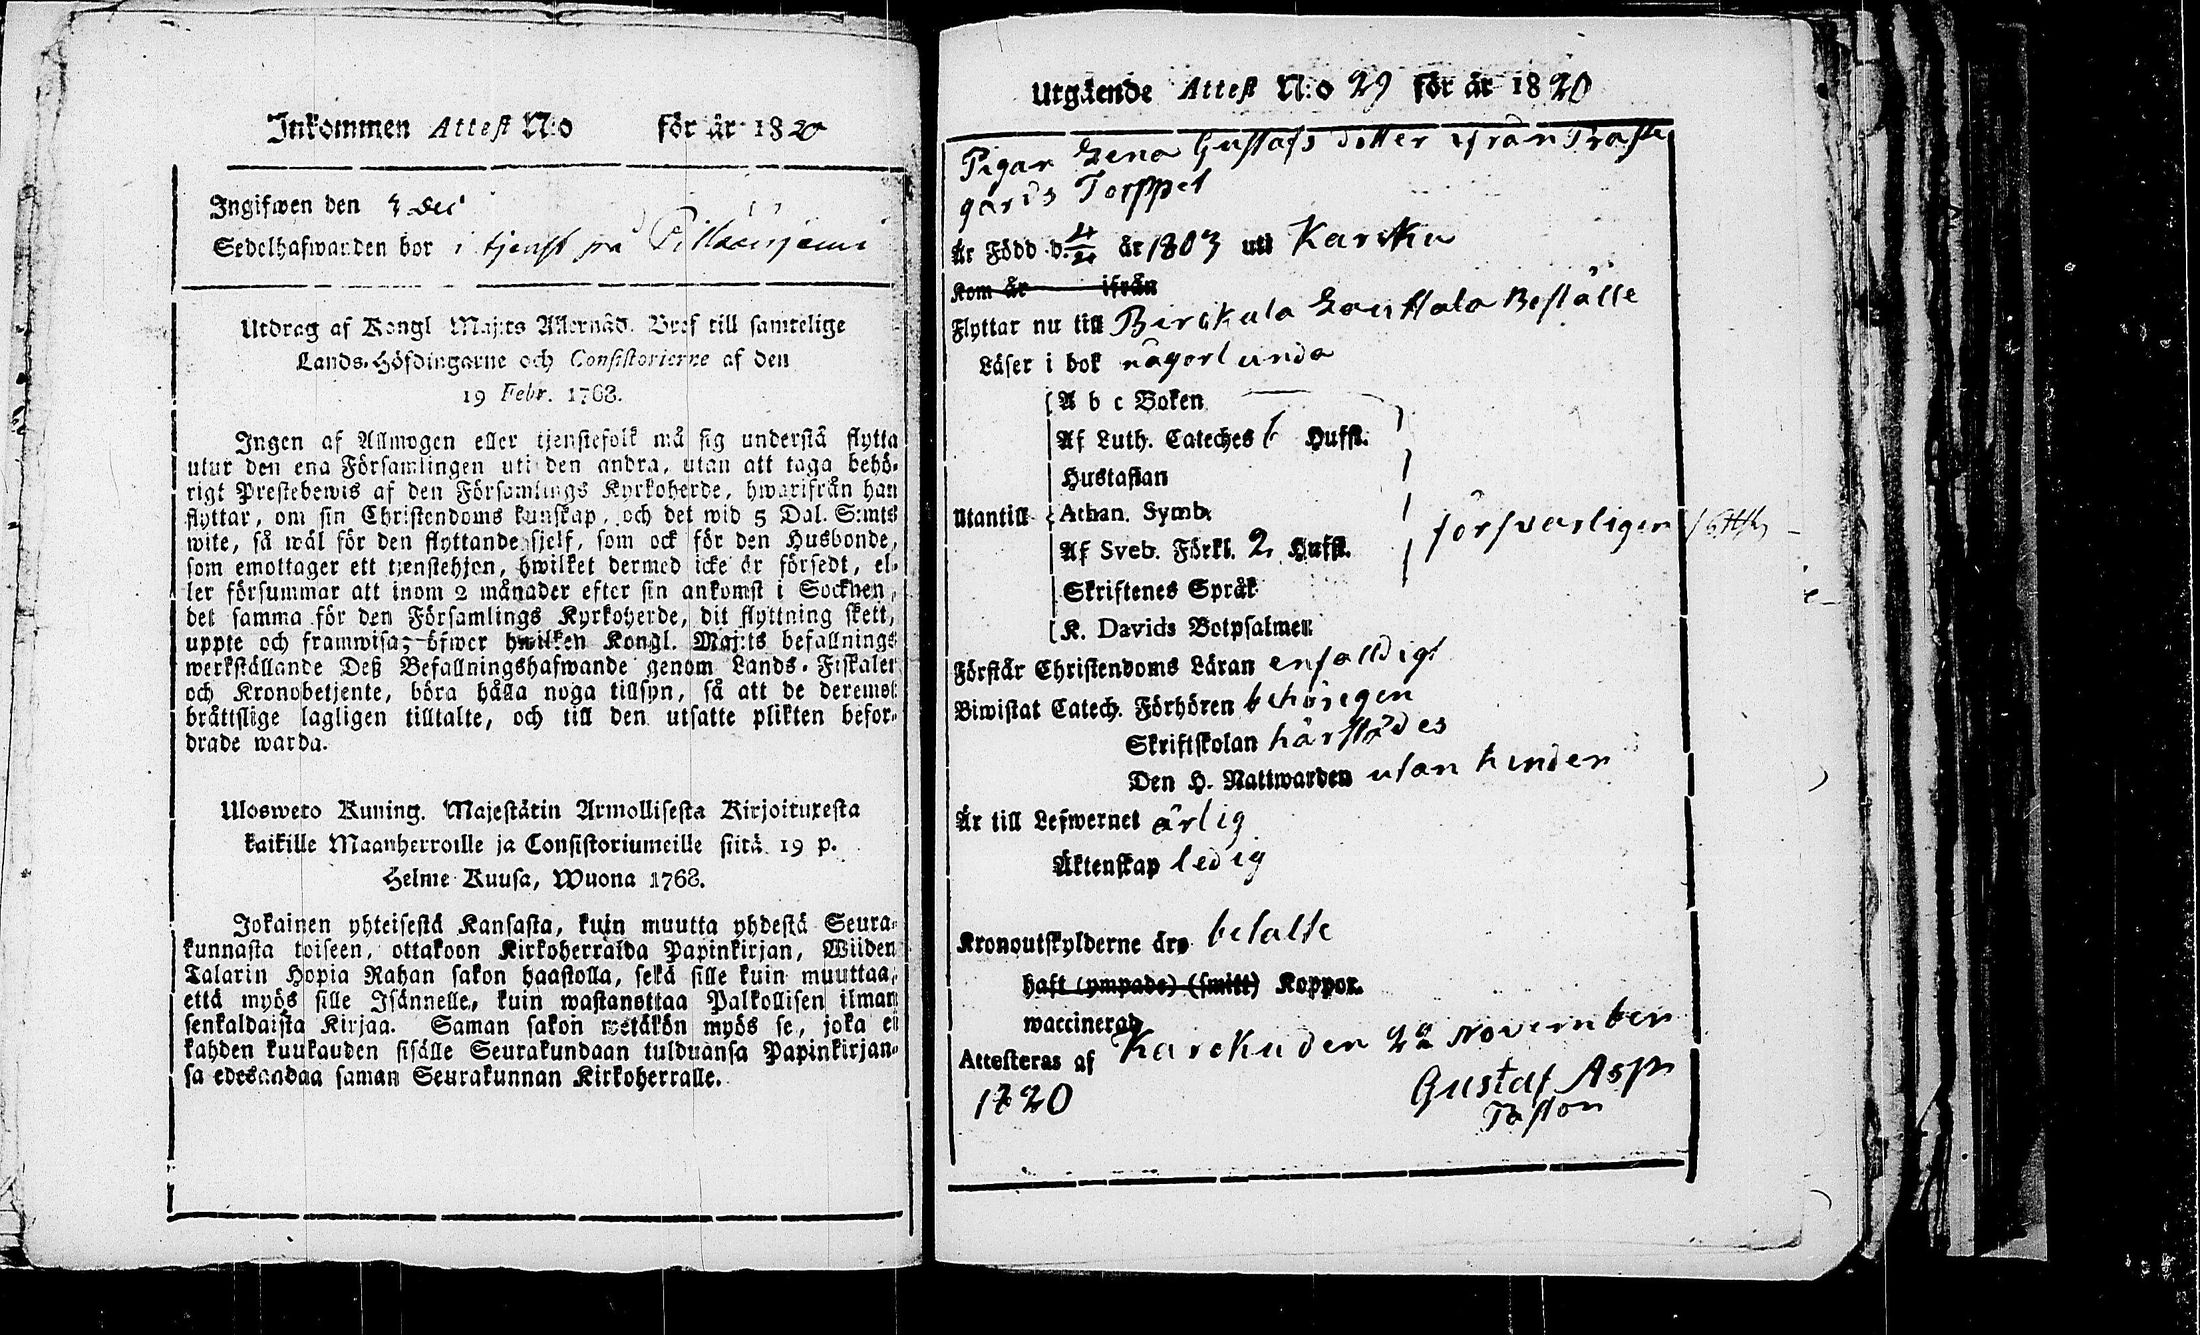 Inkommen Attest N:o för år 1820
Ingifwen den 3 Dec
Sedelhafwanden bor i tjenst på
Utdrag af Kongl Maj:ts Allernåd. Bref till samtelige
Lands-Höfdingarne och Consistorierne af den
19 Febr. 1768.
Ingen af Allmogen eller tjenstefolk må sig understå flytta
utur den ena Församlingen uti den andra, utan att taga behö-
rigt Prestebewis af den Församlings Kyrkoherde, hwarifrån han
flyttar, om sin Christendoms kunskap, och det wid 5 Dal. S:mts
wite, så wäl för den flyttande sjelf, som ock för den Husbonde,
som emottager ett tjenstehjon, hwilket dermed icke är försedt, el-
ler försummar att inom 2 månader efter sin ankomst i Socknen,
det samma för den Församlings Kyrkoherde, dit flyttning skett,
uppte och framwisa; öfwer hwilken Kongl. Maj:ts befallnings
werkställande Deß Befallningshafwande genom Lands-Fiskaler
och Kronobetjente, böra hålla noga tillsyn, så att de deremot
bråttslige lagligen tilltalte, och till den utsatte plikten befor-
drade warda.
Ulosweto Kuning. Majestätin Armollisesta Kirjoituxesta
kaikille Maanherroille ja Consistoriumeille siitä 19 p.
Helme Kuusa, Wuona 1768.
Jokainen yhteisestä Kansasta, kuin muutta yhdestä Seura-
kunnasta toiseen, ottakoon Kirkoherralda Papinkirjan, Wiiden
Talarin Hopia Rahan sakon haastolla, sekä sille kuin muuttaa,
että myös sille Isännelle, kuin wastanottaa Palkollisen ilman
senkaldaista Kirjaa. Saman sakon wetäkön myös se, joka ei
kahden kuukauden sisälle Seurakundaan tulduansa Papinkirjan-
sa edesandaa saman Seurakunnan Kirkoherralle.
Utgående Attest N:o 29 för år 1820
Pigan Lena Gustafs dotter ifrån Traste
gårds Torppet
Är Född d. år 1803 uti Karcku
Kom år ifrån
Flyttar nu till Birckala Beställe
Läser i bok någorlunda
A b c Boken
Af Luth. Cateches 6 Hufst.
Hustaflan
Utantill Athan. Symb. försvarligen
Af Sveb. Förkl. 2 Hufst.
Skriftenes Språk
K. Davids Botpsalmer
Förstår Christendoms Läran enfalldigt
Biwistat Catech. Förhören behörigen
Skriftskolan härstädes
Den H. Nattwarden utan hinder
Är till Lefwernet ärlig
Äktenskap ledig
Kronoutskylderne äro betalte
haft (ympade) (smitt) Koppor.
waccinerad
Attesteras af Karcku den 22 November
1820 Gustaf Asp
Pastor